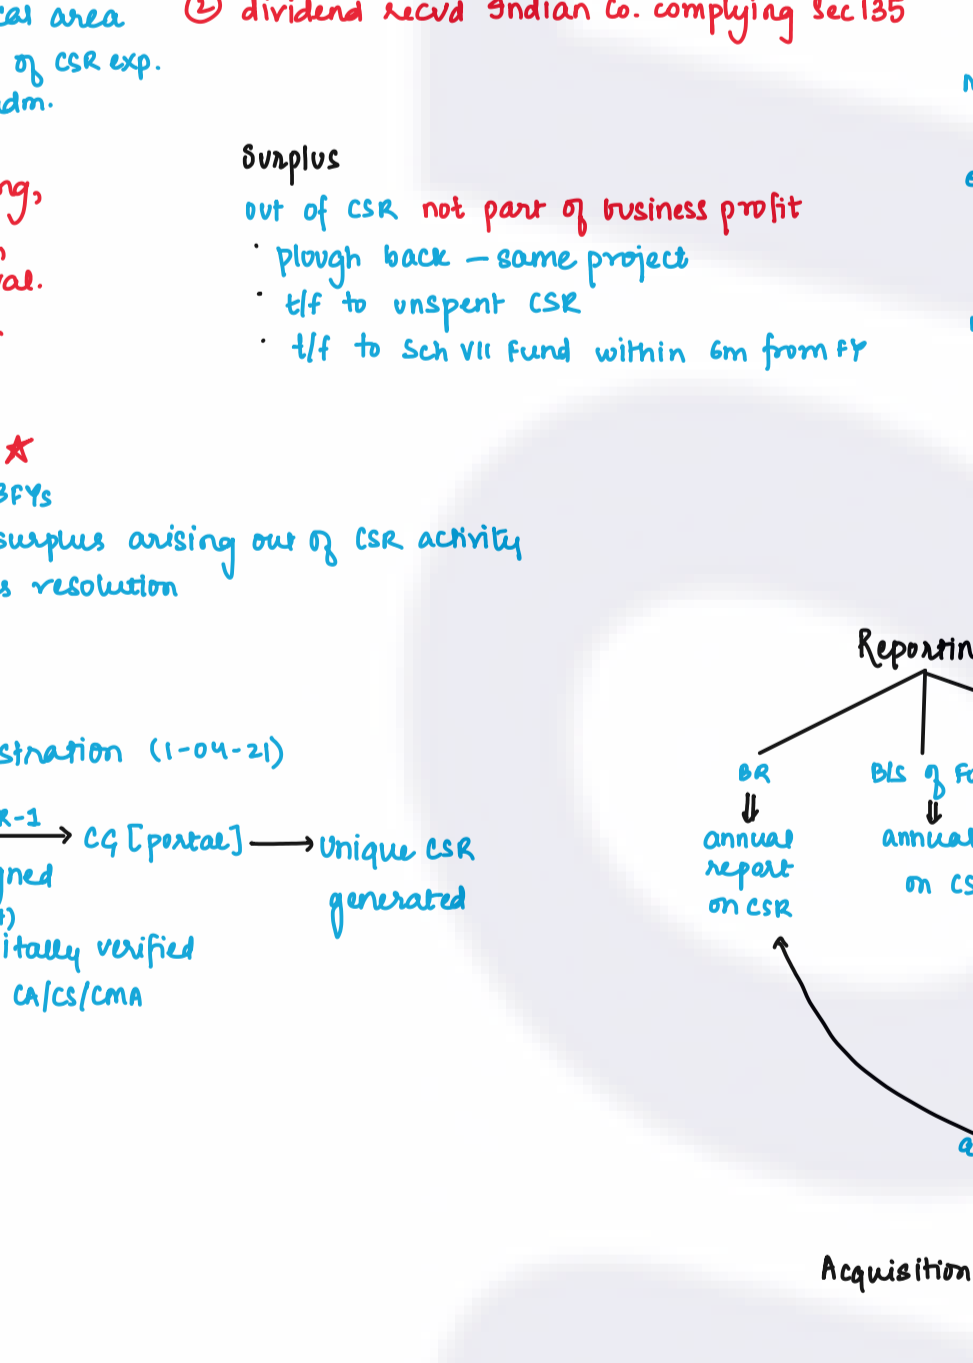 ② dividend recvd Indian Co. complying Sec 135
cal area
of CSR exp.
adm.
ng,
val.
Surplus
out of CSR not part of business profit
· plough back – same project
· t/f to unspent CSR
· t/f to Sch VII Fund within 6m from FY
3FYs
surplus arising out of CSR activity
s resolution
stration (1-04-21)
R-1 → CG [portal] → Unique CSR
generated
gned
itally verified
CA/CS/CMA
Reportin
BR
annual
report
on CSR
BLS of Fo
annual
on CS
Acquisition